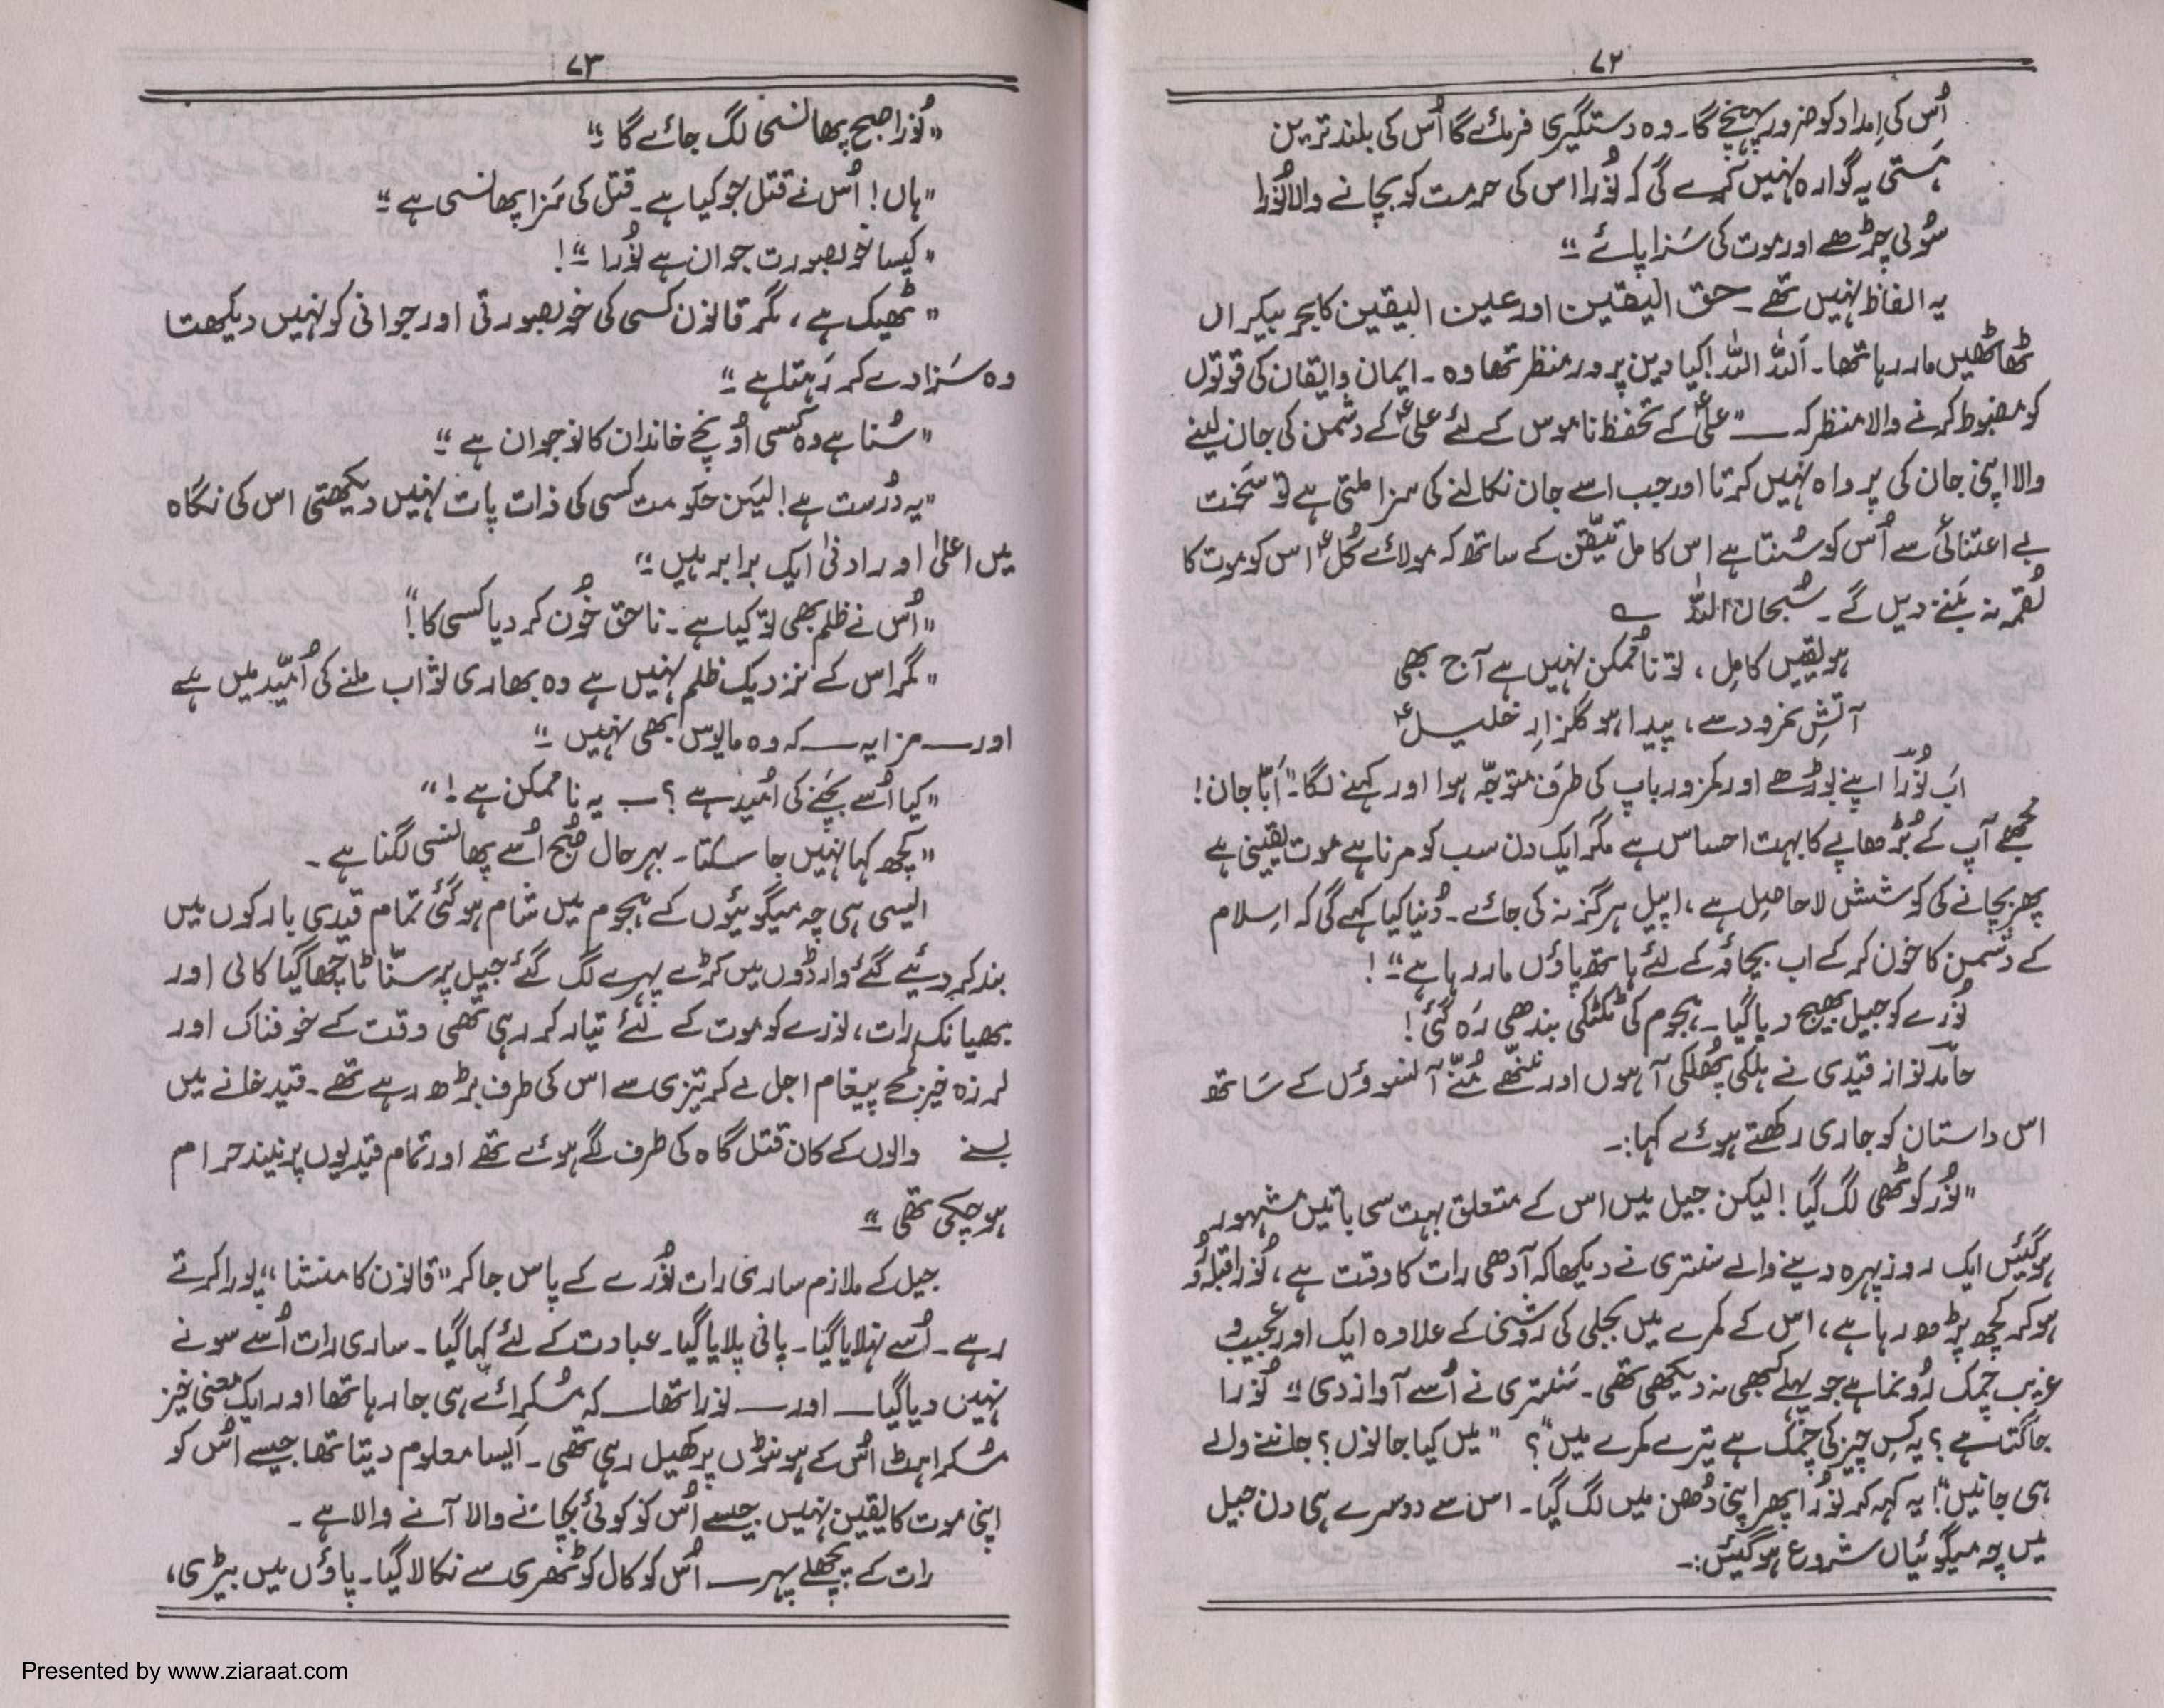 ۷۲
اُس کی اِمداد کو ضرور پہنچے گا۔ وہ دستگیری فرمائے گا اُس کی بلند ترین
ہستی یہ گوارہ نہیں کرے گی کہ نُورا اس کی حرمت کو بچانے والا نُورا
سُولی چڑھے اور موت کی سَزا پائے“
یہ الفاظ نہیں تھے۔ حق الیقین اور عین الیقین کا بحرِ بیکراں
ٹھاٹھیں مار رہا تھا۔ اَللہ اللہ! کیا دین پرور منظر تھا وہ۔ ایمان و ایقان کی قوتوں
کو مضبوط کرنے والا منظر کہ — ”علیؑ کے تحفظ ناموس کے لئے علیؑ کے دشمن کی جان لینے
والا اپنی جان کی پرواہ نہیں کرتا اور جب اسے جان نکالنے کی سزا ملتی ہے تو سَخت
بے اعتنائی سے اُس کو سُنتا ہے اس کامل تیقّن کے ساتھ کہ مولائے کُلؑ اس کو موت کا
لُقمہ نہ بَننے دیں گے۔ سُبحان اللہ ؎
ہو یقیں کامِل، تو ناممُکن نہیں ہے آج بھی
آتشِ نمرود سے، پیدا ہو گلزارِ خلیلؑ
اَب نُورَا اپنے بوڑھے اور کمزور باپ کی طرَف متوجّہ ہوا اور کہنے لگا۔ ”اَبّا جان!
مجھے آپ کے بُڑھاپے کا بہت احساس ہے مگر ایک دن سب کو مرنا ہے موت یقینی ہے
پھر بچانے کی کوشش لاحاصِل ہے، اپیل ہرگز نہ کی جائے۔ دُنیا کیا کہے گی کہ اِسلام
کے دشمن کا خون کر کے اب بچاؤ کے لئے ہاتھ پاؤں مار رہا ہے“!
نُورے کو جیل بھیج دیا گیا۔ ہجوم کی ٹکٹکی بندھی رَہ گئی!
حامد نواز قیدی نے ہلکی پُھلکی آہوں اور ننّھے مُنّے آنسوؤں کے سَاتھ
اس داستان کو جاری رکھتے ہوئے کہا:۔
”نُور کوٹھی لگ گیا! لیکن جیل میں اس کے متعلق بہت سی باتیں مشہور
ہوگئیں ایک روز پہرہ دینے والے سنتری نے دیکھا کہ آدھی رات کا وقت ہے، نُورا قبلہ رُو
ہو کر کچھ پڑھ رہا ہے، اس کے کمرے میں بجلی کی روشنی کے علاوہ ایک اور عجیب و
غریب چمک رُونما ہے جو پہلے کبھی نہ دیکھی تھی۔ سَنتری نے اُسے آواز دی“ نُورا
جاگتا ہے؟ یہ کِس چیز کی چمک ہے تیرے کمرے میں“؟ ”میں کیا جانوں؟ جاننے والے
ہی جانیں“! یہ کہہ کر نُورا پھر اپنی دُھن میں لگ گیا۔ اس سے دوسرے ہی دن جیل
میں چہ میگوئیاں شروع ہو گئیں:۔
۷۳
”نُورا صبح پھانسی لگ جائے گا“
”ہاں! اُس نے قتل جو کیا ہے۔ قتل کی سَزا پھانسی ہے“
”کیسا خوبصورت جوان ہے نُورا“!
”ٹھیک ہے، مگر قانون کسی کی خوبصورتی اور جوانی کو نہیں دیکھتا
وہ سَزا دے کر رَہتا ہے“
”سُنا ہے وہ کسی اُونچے خاندان کا نوجوان ہے“
”یہ دُرست ہے! لیکن حکومت کسی کی ذات پات نہیں دیکھتی اس کی نگاہ
میں اعلیٰ اور ادنیٰ ایک برابر ہیں“
”اُس نے ظلم بھی تو کیا ہے۔ ناحق خُون کر دیا کسی کا“!
”مگر اس کے نزدیک ظلم نہیں ہے وہ بھاری ثواب ملنے کی اُمّید میں ہے
اور — مزا یہ — کہ وہ مایوس بھی نہیں“
”کیا اُسے بچنے کی اُمید ہے؟ — یہ ناممکن ہے!“
”کچھ کہا نہیں جا سکتا۔ بہرحال صُبح اُسے پھانسی لگنا ہے۔
ایسی ہی چہ میگوئیوں کے ہجوم میں شام ہو گئی تمام قیدی بارکوں میں
بند کر دیئے گئے وارڈوں میں کڑے پہرے لگ گئے جیل پر سنّاٹا چھا گیا کالی اور
بھیانک رات، نورے کو موت کے لئے تیار کر رہی تھی وقت کے خوفناک اور
لرزہ خیز لمحے پیغام اجل لے کر تیزی سے اس کی طرف بڑھ رہے تھے۔ قید خانے میں
بسنے والوں کے کان قتل گاہ کی طرف لگے ہوئے تھے اور تمام قیدیوں پر نیند حرام
ہو چکی تھی“
جیل کے ملازم ساری رات نُورے کے پاس جا کر ”قانون کا منشا“ پورا کرتے
رہے۔ اُسے نہلایا گیا۔ پانی پلایا گیا۔ عبادت کے لئے کہا گیا۔ ساری رات اُسے سونے
نہیں دیا گیا — اور — نورا تھا — کہ مُسکرائے ہی جا رہا تھا اور ایک معنی خیز
مُسکراہٹ اُس کے ہونٹوں پر کھیل رہی تھی۔ اَیسا معلوم دیتا تھا جیسے اُس کو
اپنی موت کا یقین نہیں جیسے اُس کو کوئی بچانے والا آنے والا ہے۔
رات کے پچھلے پہر — اُس کو کال کوٹھری سے نکالا گیا۔ پاؤں میں بیڑی،
Presented by www.ziaraat.com